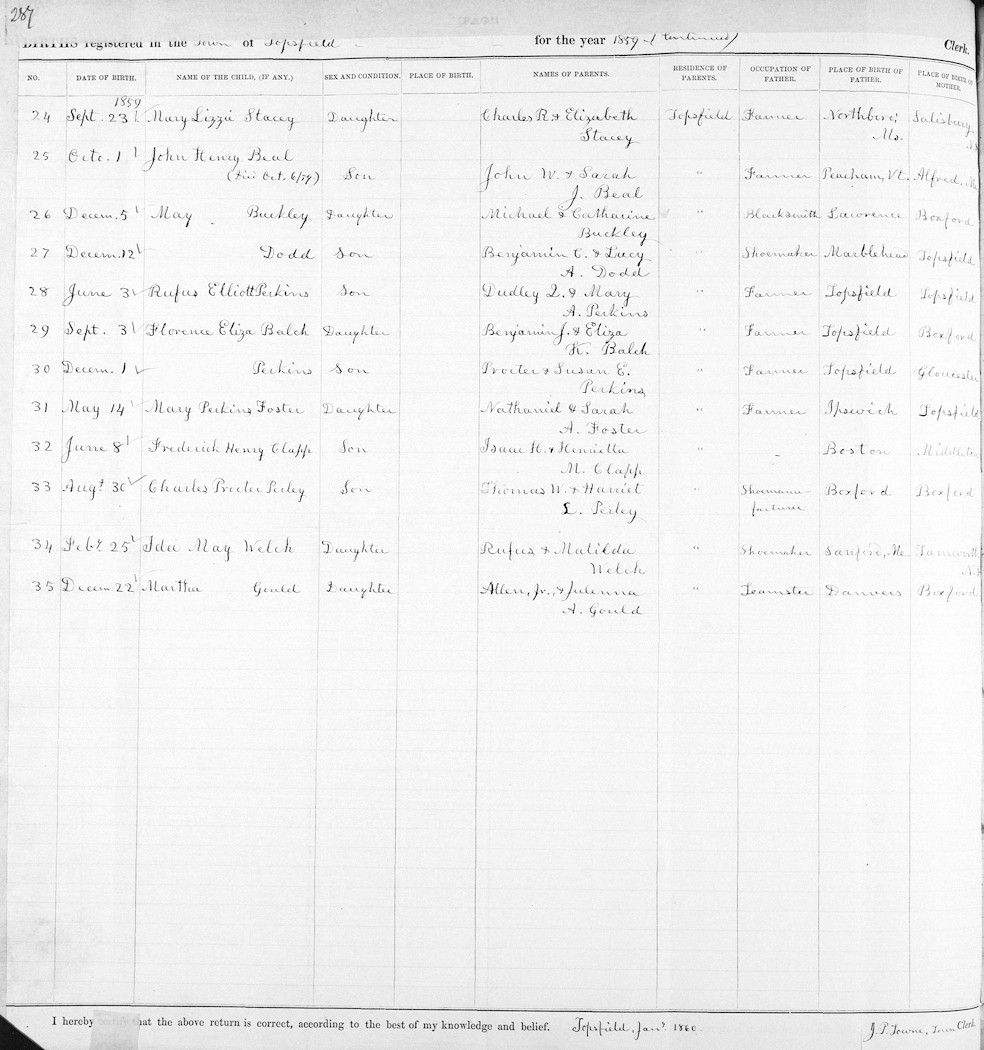 287
BIRTHS registered in the Town of Topsfield for the year 1859 - (Continued) Clerk.
NO. DATE OF BIRTH. NAME OF THE CHILD, (IF ANY.) SEX AND CONDITION. PLACE OF BIRTH. NAMES OF PARENTS. RESIDENCE OF PARENTS. OCCUPATION OF FATHER. PLACE OF BIRTH OF FATHER. PLACE OF BIRTH OF MOTHER.
1859
24 Sept. 23 Mary Lizzie Stacey Daughter Charles R. & Elizabeth Topsfield Farmer Northboro; Salisbury,
Stacey Ms.
25 Octo. 1 John Henry Beal
(Died Oct. 6/59) Son John W. & Sarah " Farmer Peacham, Vt. Alfred, Me
J. Beal
26 Decem. 5 May Buckley Daughter Michael & Catharine " Blacksmith Lawrence Boxford
Buckley
27 Decem. 12 Dodd Son Benjamin C. & Lucy " Shoemaker Marblehead Topsfield
A. Dodd
28 June 3 Rufus Elliott Perkins Son Dudley Q. & Mary " Farmer Topsfield Topsfield
A. Perkins
29 Sept. 3 Florence Eliza Balch Daughter Benjamin J. & Eliza " Farmer Topsfield Boxford
K. Balch
30 Decem. 1 Perkins Son Procter & Susan E. " Farmer Topsfield Gloucester
Perkins
31 May 14 Mary Perkins Foster Daughter Nathaniel & Sarah " Farmer Ipswich Topsfield
A. Foster
32 June 8 Frederick Henry Clapp Son Isaac H. & Henrietta " - Boston Middleton
M. Clapp
33 Augt. 30 Charles Procter Perley Son Thomas W. & Harriet " Shoemanu- Boxford Boxford
L. Perley facturer
34 Feby. 25 Ida May Welch Daughter Rufus & Matilda " Shoemaker Sanford, Me Tamworth
Welch N.H
35 Decem 22 Martha Gould Daughter Allen, Jr., & Julenna " Teamster Danvers Boxford
A. Gould
I hereby certify that the above return is correct, according to the best of my knowledge and belief. Topsfield, Jany. 1860. J. P. Towne, Town Clerk